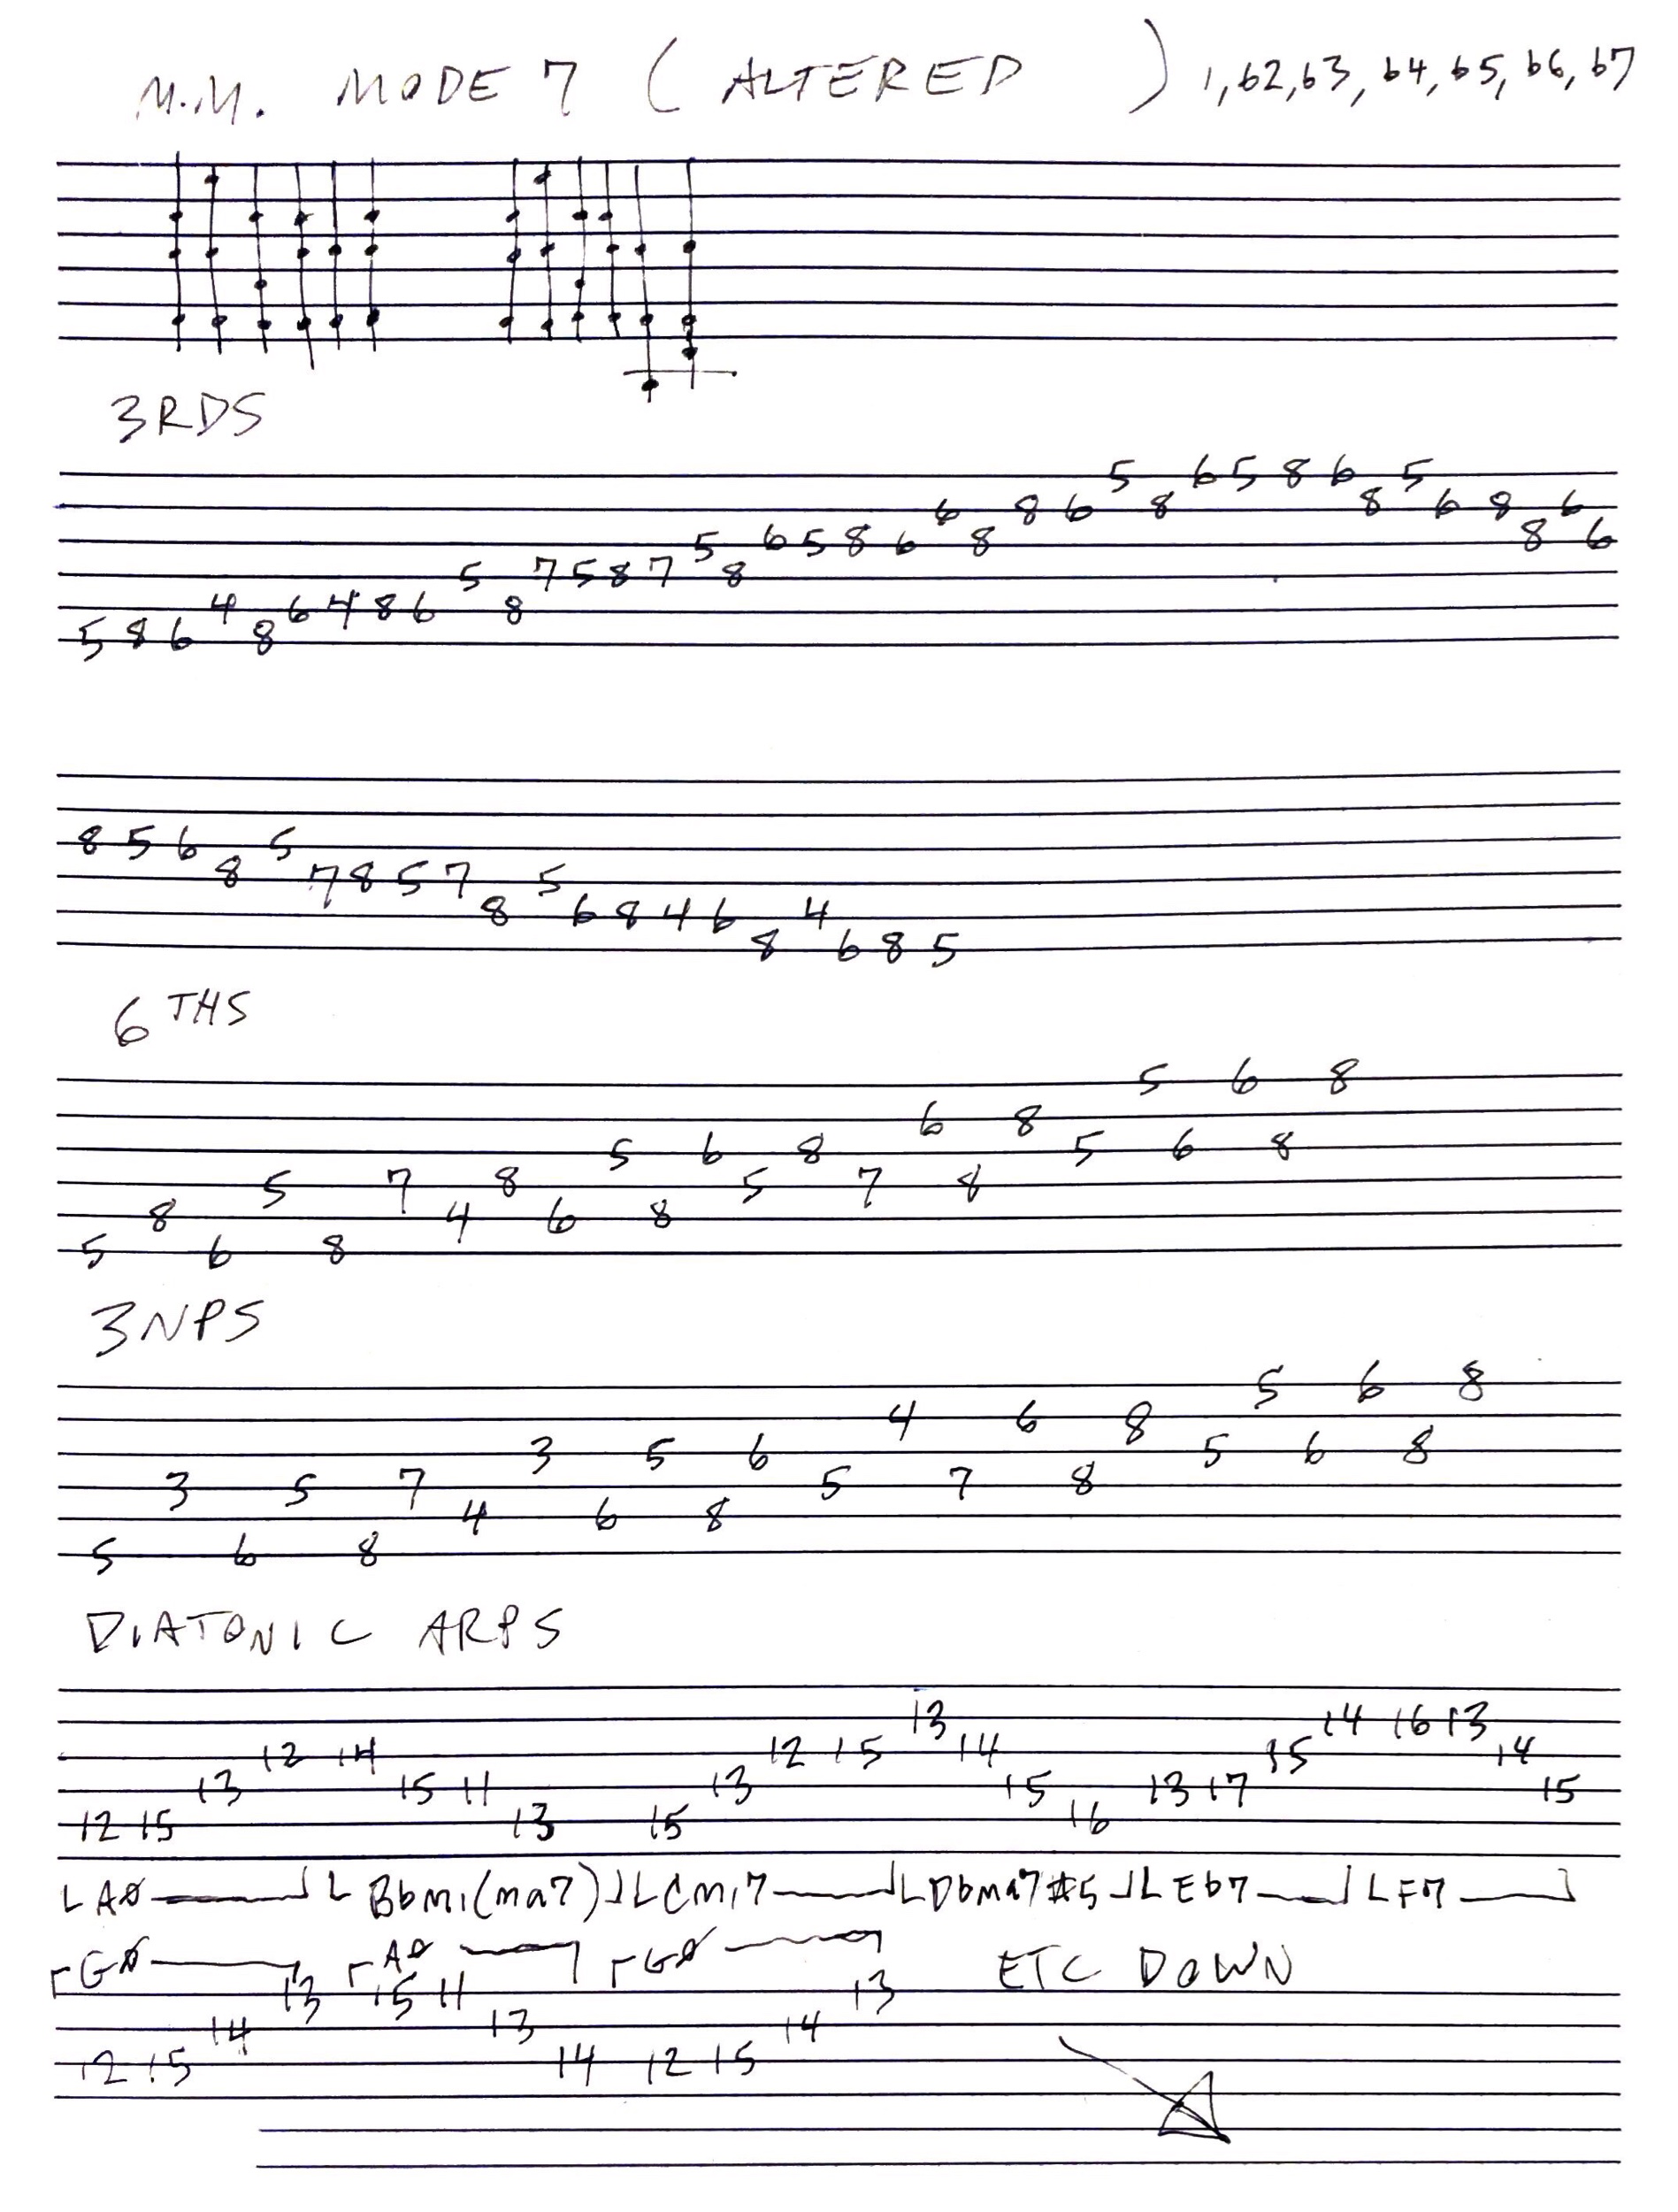 M.M. MODE 7 ( ALTERED ) 1, b2, b3, b4, b5, b6, b7
3RDS
5 8 6 4 8 6 4 8 6 5 8 7 5 8 7 5 8 6 5 8 6 6 8 8 6 5 8 6 5 8 6 8 5 6 8 8 6 6
8 5 6 8 5 7 8 5 7 8 5 6 8 4 6 8 4 6 8 5
6THS
5 8 6 5 8 7 4 8 6 5 8 6 5 8 7 6 8 8 5 5 6 6 8 8
3NPS
5 3 6 5 8 7 4 3 6 5 8 6 5 4 7 6 8 8 5 5 6 6 8 8
DIATONIC ARPS
12 15 13 12 14 15 11 13 15 13 12 15 13 14 15 16 13 17 15 14 16 13 14 15
AØ Bbmi(ma7) Cmi7 Dbma7#5 Eb7 F7
GØ AØ GØ ETC DOWN
12 15 14 13 15 11 13 14 12 15 14 13